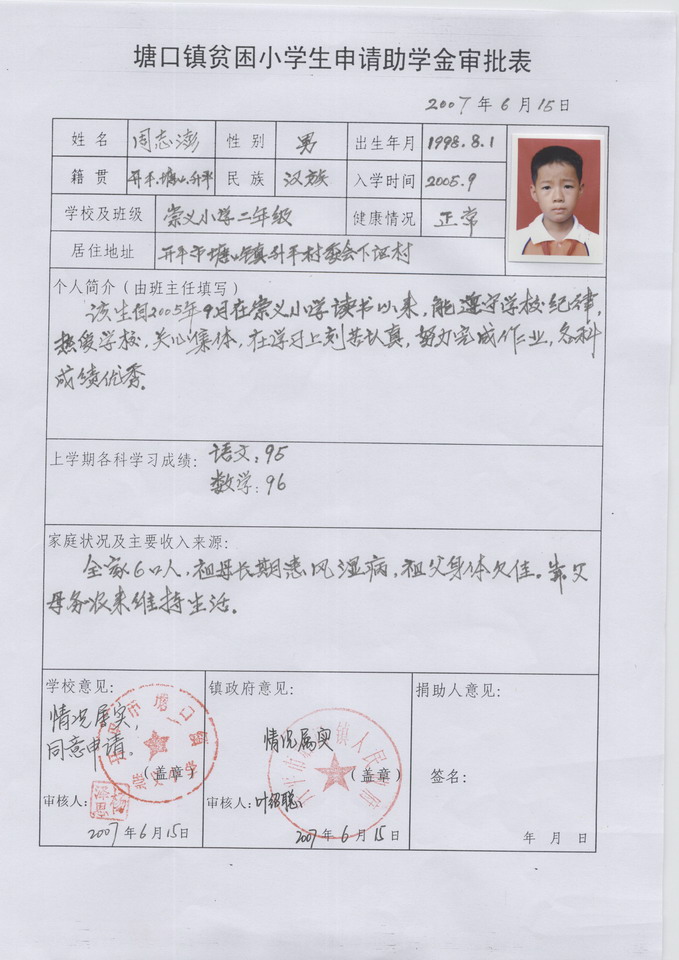 塘口镇贫困小学生申请助学金审批表
2007年6月15日
姓名 周志澎 性别 男 出生年月 1998.8.1
籍贯 开平.塘口.升平 民族 汉族 入学时间 2005.9
学校及班级 崇义小学二年级 健康情况 正常
居住地址 开平市塘口镇升平村委会下证村
个人简介（由班主任填写）
该生自2005年9月在崇义小学读书以来，能遵守学校纪律，
热爱学校，关心集体，在学习上刻苦认真，努力完成作业，各科
成绩优秀。
上学期各科学习成绩： 语文：95
数学：96
家庭状况及主要收入来源：
全家6口人，祖母长期患风湿病，祖父身体欠佳。靠父
母务农来维持生活。
学校意见： 镇政府意见： 捐助人意见：
情况属实， 情况属实
同意申请。
（盖章） （盖章） 签名：
审核人： 审核人：叶绍聪
2007年6月15日 2007年6月15日 年 月 日